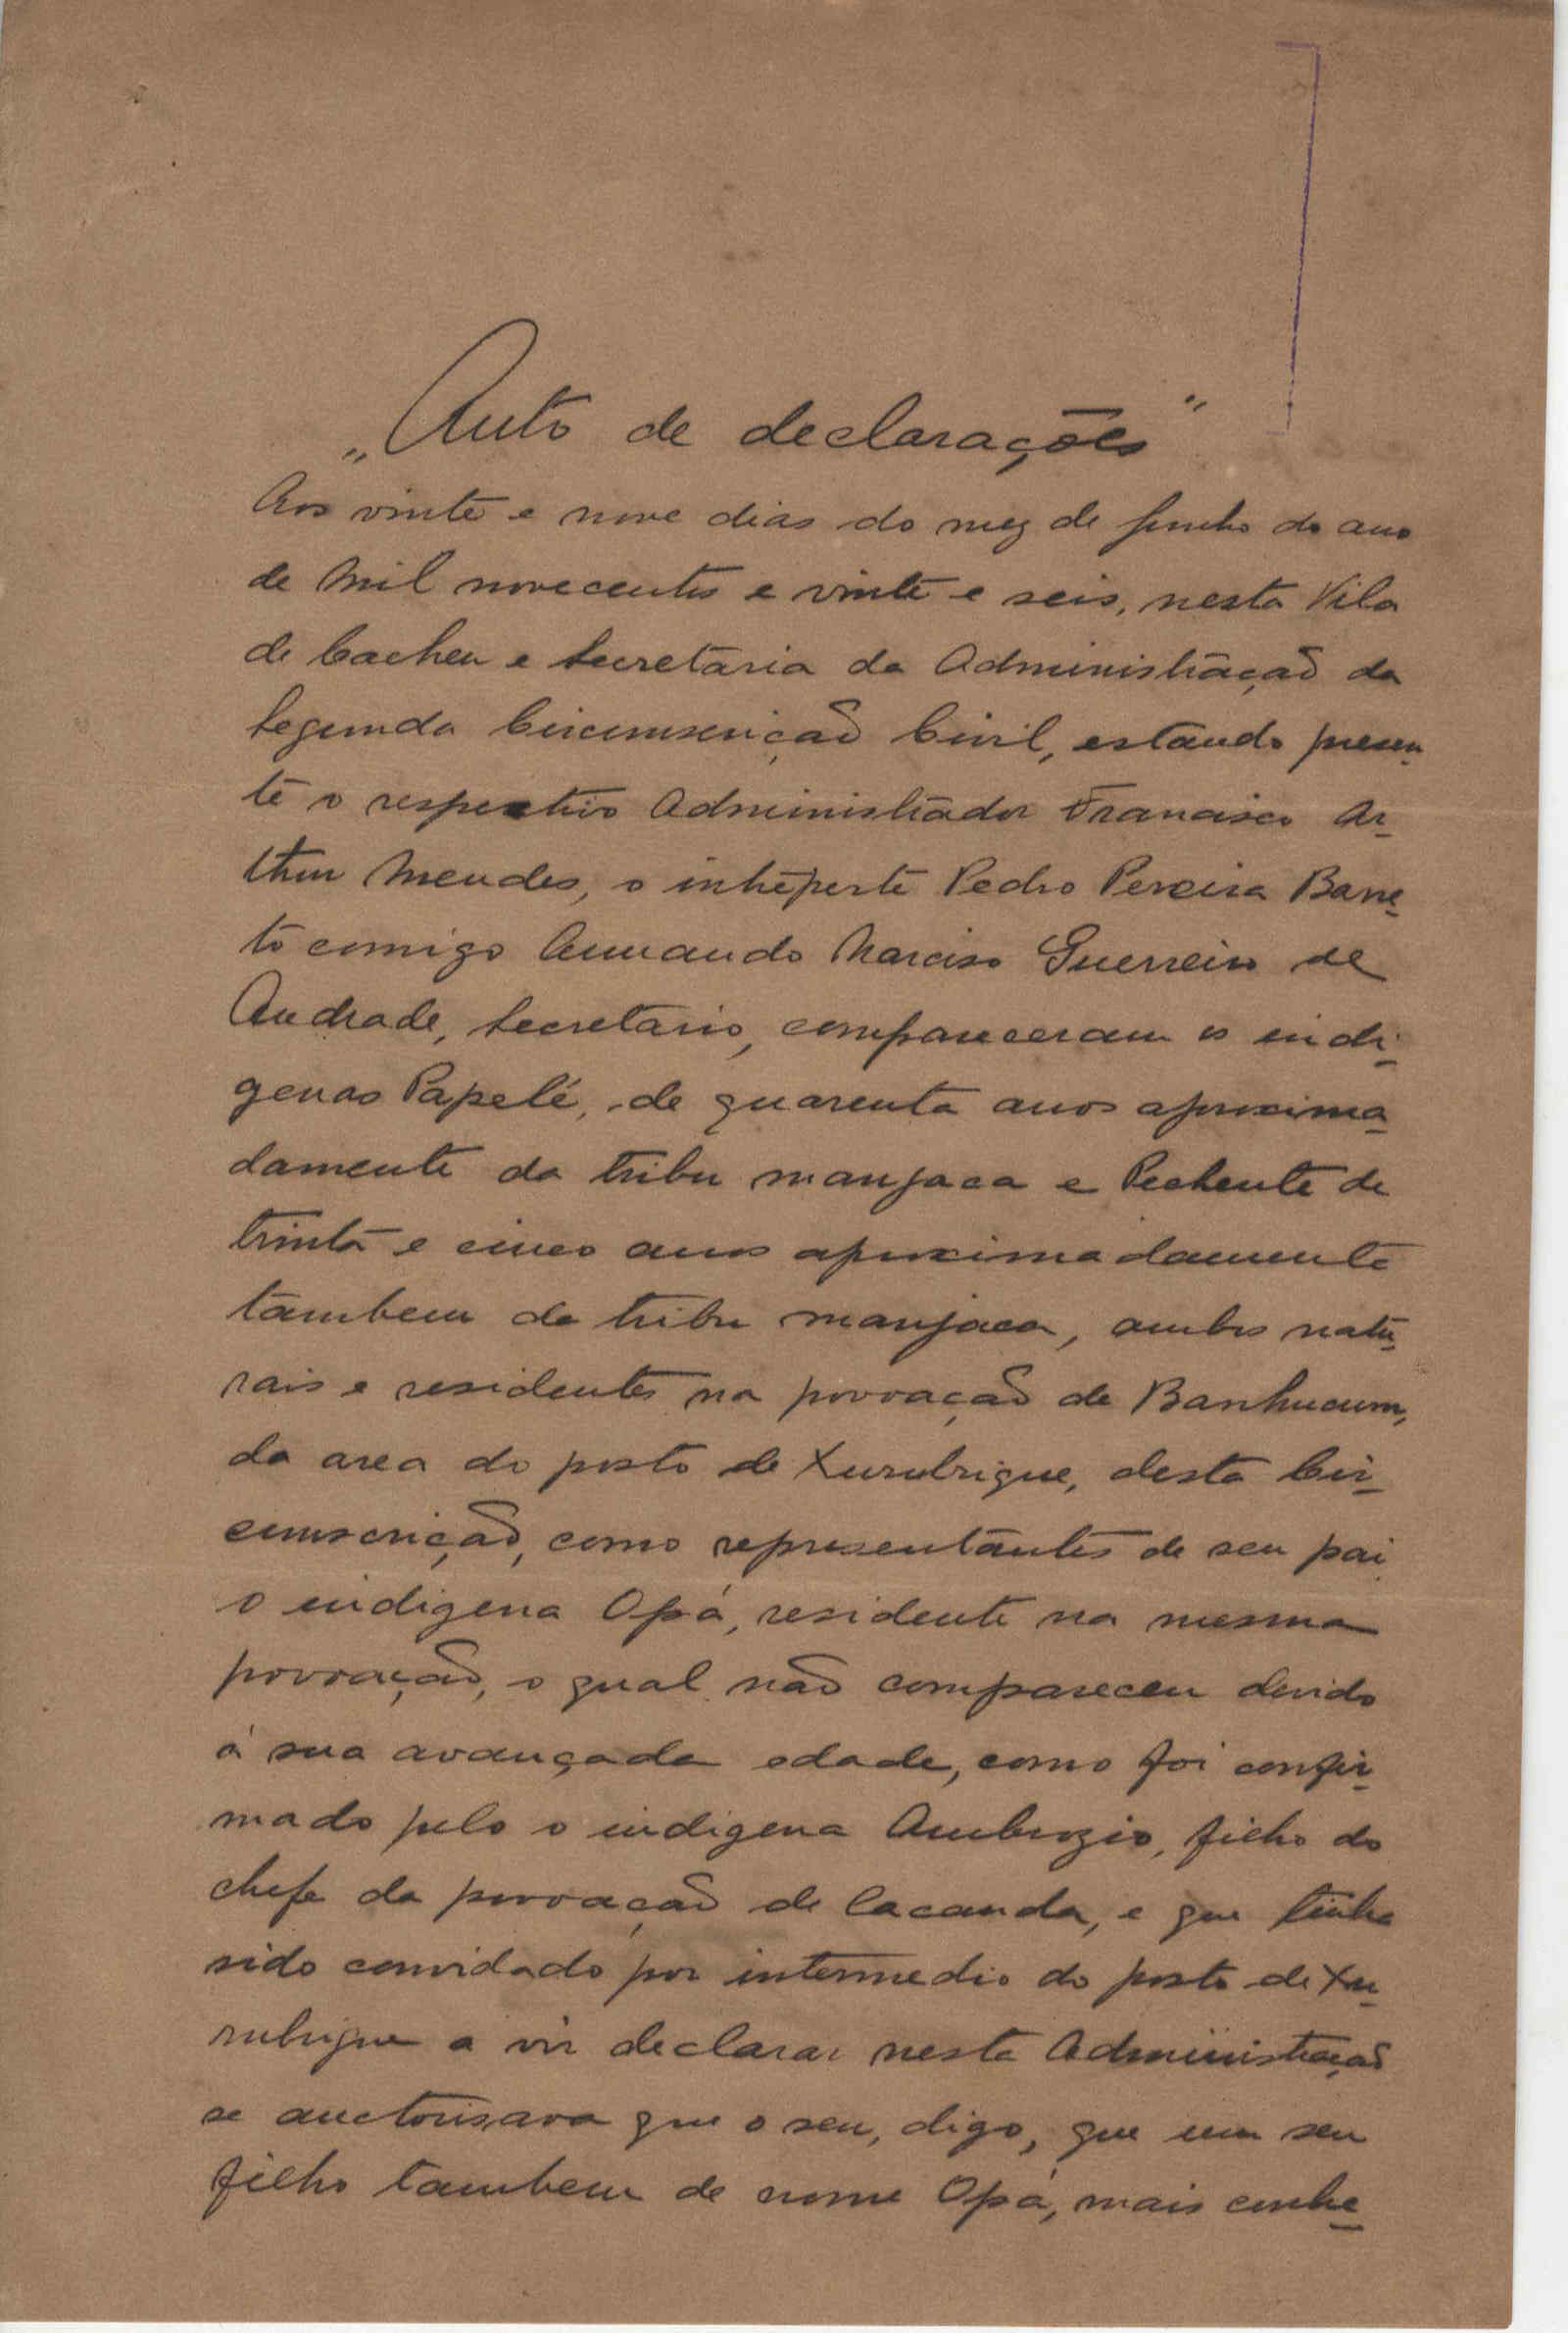 „Auto de declarações"
Aos vinte e nove dias do mez de Junho do ano
de mil novecentos e vinte e seis, nesta Vila
de Cacheu e Secretaria da Administração da
Segunda Circumscrição Civil, estando presen-
te o respectivo Administrador Francisco Ar-
thur Mendes, o intreperte Pedro Pereira Barre-
to comigo Armando Narciso Guerreiro de
Andrade, Secretario, compareceram os indi-
genas Papelé, de quarenta anos aproxima-
damente da tribu manjaca e Pechente de
trinta e cinco anos aproximadamente
tambem da tribu manjaca, ambos natu-
rais e residentes na povoação de Banhucum,
da area do posto de Xurubrique, desta Cir-
cumscrição, como representantes de seu pai
o indigena Opá, residente na mesma
povoação, o qual não compareceu devido
á sua avançada edade, como foi confir-
mado pelo o indigena Ambrozio, filho do
chefe da povoação de Cacanda, e que tinha
sido convidado por intermedio do posto de Xu-
rubrique a vir declarar nesta Administração
se auctorisava que o seu, digo, que um seu
filho tambem de nome Opá, mais conhe-